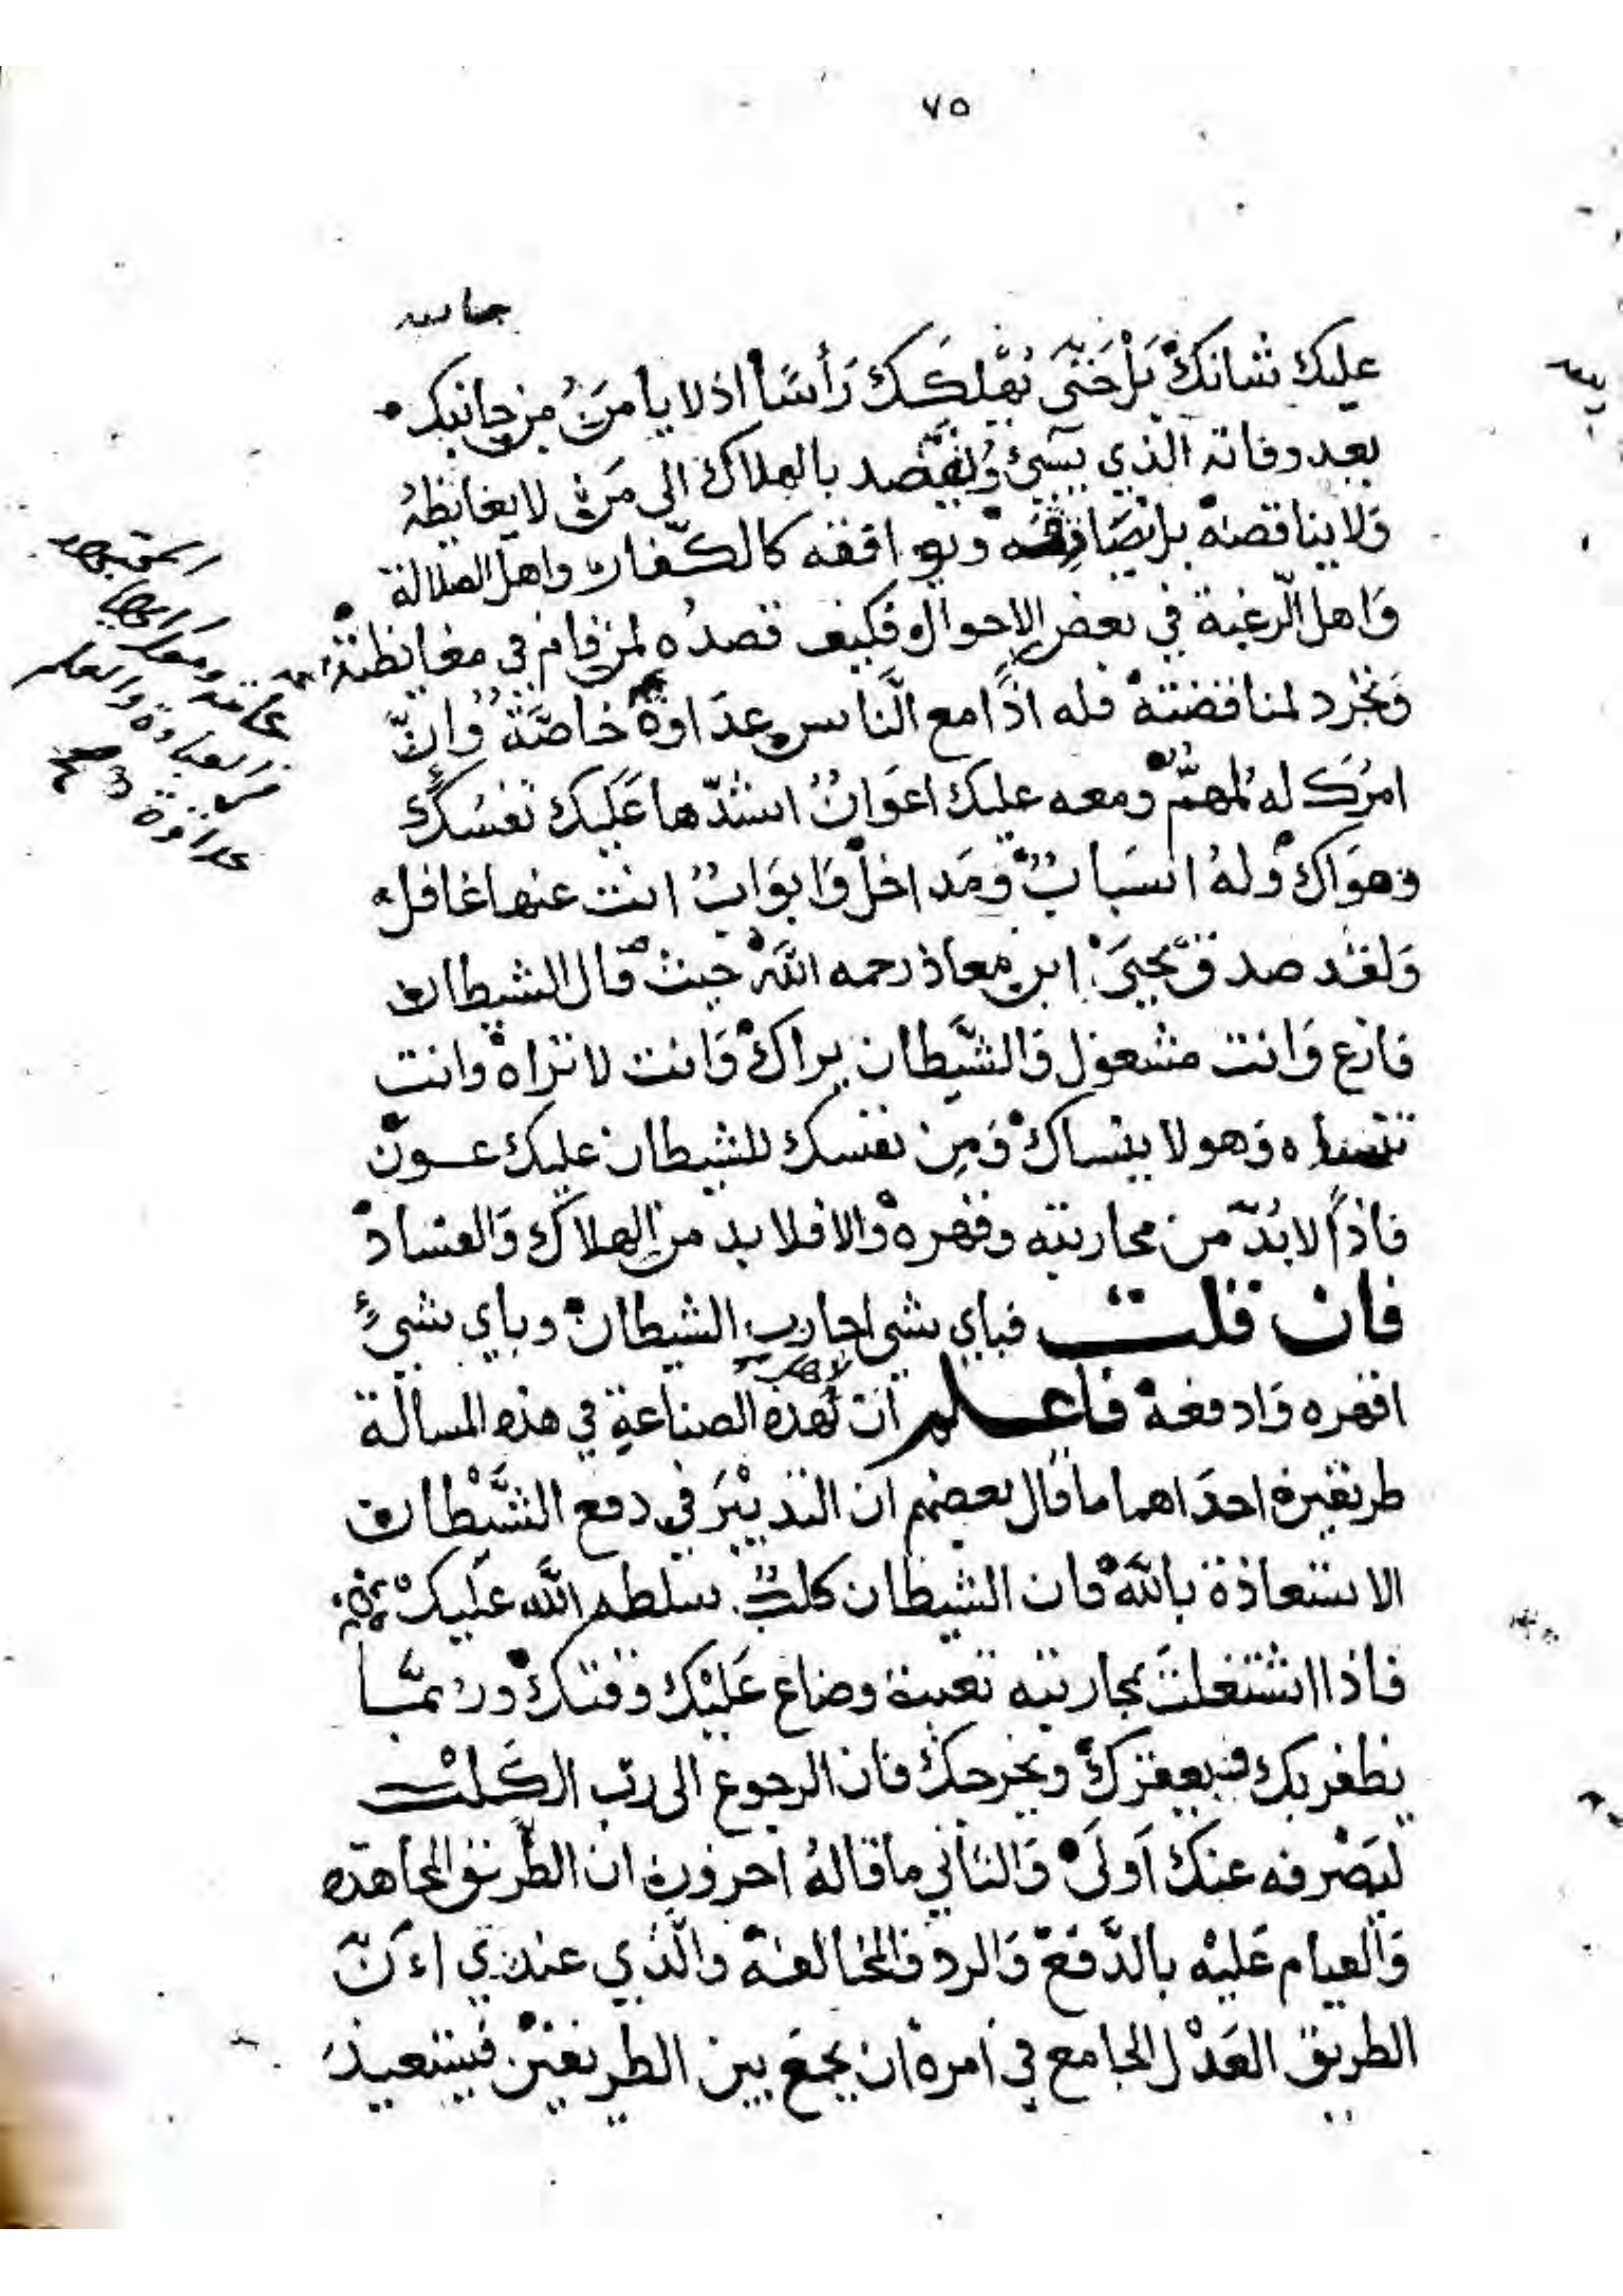 ٧٥
عليك شانك بل حتى يهلكك رأسا اذ لا يأمن من جانبك
بعد وفاته الذي يسيء ويقصد بالهلاك الى من لا يغايظه
ولا يناقضه بل يصادقه ويوافقه كالكفار واهل الضلالة
واهل الرغبة في بعض الاحوال فكيف قصده لمن قام في مغايظته
وتجرد لمناقضته فله اذا مع الناس عداوة خاصة وان
امرك له لمهم ومعه عليك اعوان اشدها عليك نفسك
وهواك وله اسباب ومداخل وابواب انت عنها غافل
ولقد صدق يحيى ابن معاذ رحمه الله حيث قال الشيطان
فارغ وانت مشغول والشيطان يراك وانت لا تراه وانت
تنساه وهو لا ينساك ومن نفسك للشيطان عليك عون
فاذا لا بد من محاربته وقهره والا فلا بد من الهلاك والفساد
فان قلت فباي شي احارب الشيطان وباي شيء
اقهره وادفعه فاعلم ان لهذه الصناعة في هذه المسالة
طريقين احداهما ما قال بعضهم ان التدبير في دفع الشيطان
الاستعاذة بالله فان الشيطان كلب سلطه الله عليك
فاذا اشتغلت بمحاربته تعبت وضاع عليك وقتك وربما
يظفر بك فيعقرك ويجرحك فان الرجوع الى رب الكلب
ليصرفه عنك اولى والثاني ما قاله اخرون ان الطريق المجاهده
والقيام عليه بالدفع والرد والمخالفة والذي عندي ان
الطريق العدل الجامع في امره ان يجمع بين الطريقين فيستعيذ